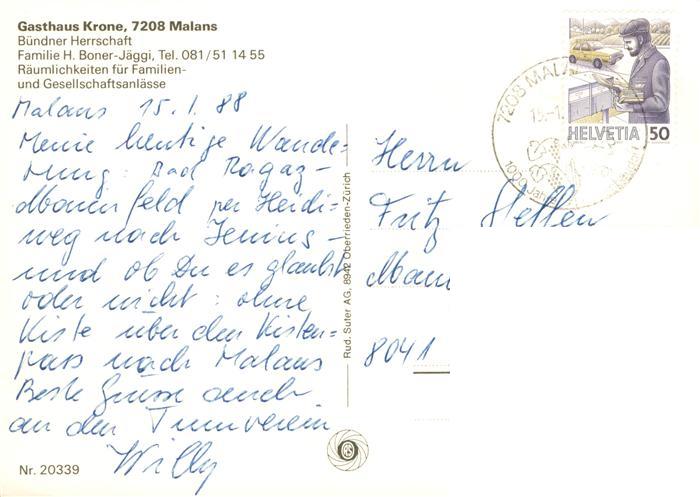 Gasthaus Krone, 7208 Malans
Bündner Herrschaft
Familie H. Boner-Jäggi, Tel. 081/51 14 55
Räumlichkeiten für Familien-
und Gesellschaftsanlässe
Malans 15.1.88
Meine heutige Wande-
rung: Bad Ragaz-
Maienfeld per Heidi-
weg nach Jenins -
und ob Du es glaubst
oder nicht: ohne
Kiste über den Kisten-
pass nach Malans
Beste Grüsse auch
an den Turnverein
Willy
Nr. 20339
Rud. Suter AG, 8942 Oberrieden-Zürich
7208 MALA
15.-1.
1000 Jah
HELVETIA 50
Herrn
Fritz
8041